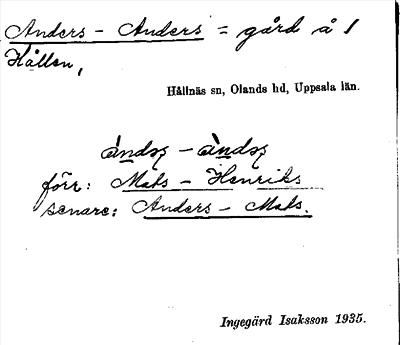 Anders - Anders = gård å 1
Hållen,
Hållnäs sn, Olands hd, Uppsala län.
àndəʂ - àndəʂ
förr: Mats - Henriks
senare: Anders - Mats.
Ingegärd Isaksson 1935.